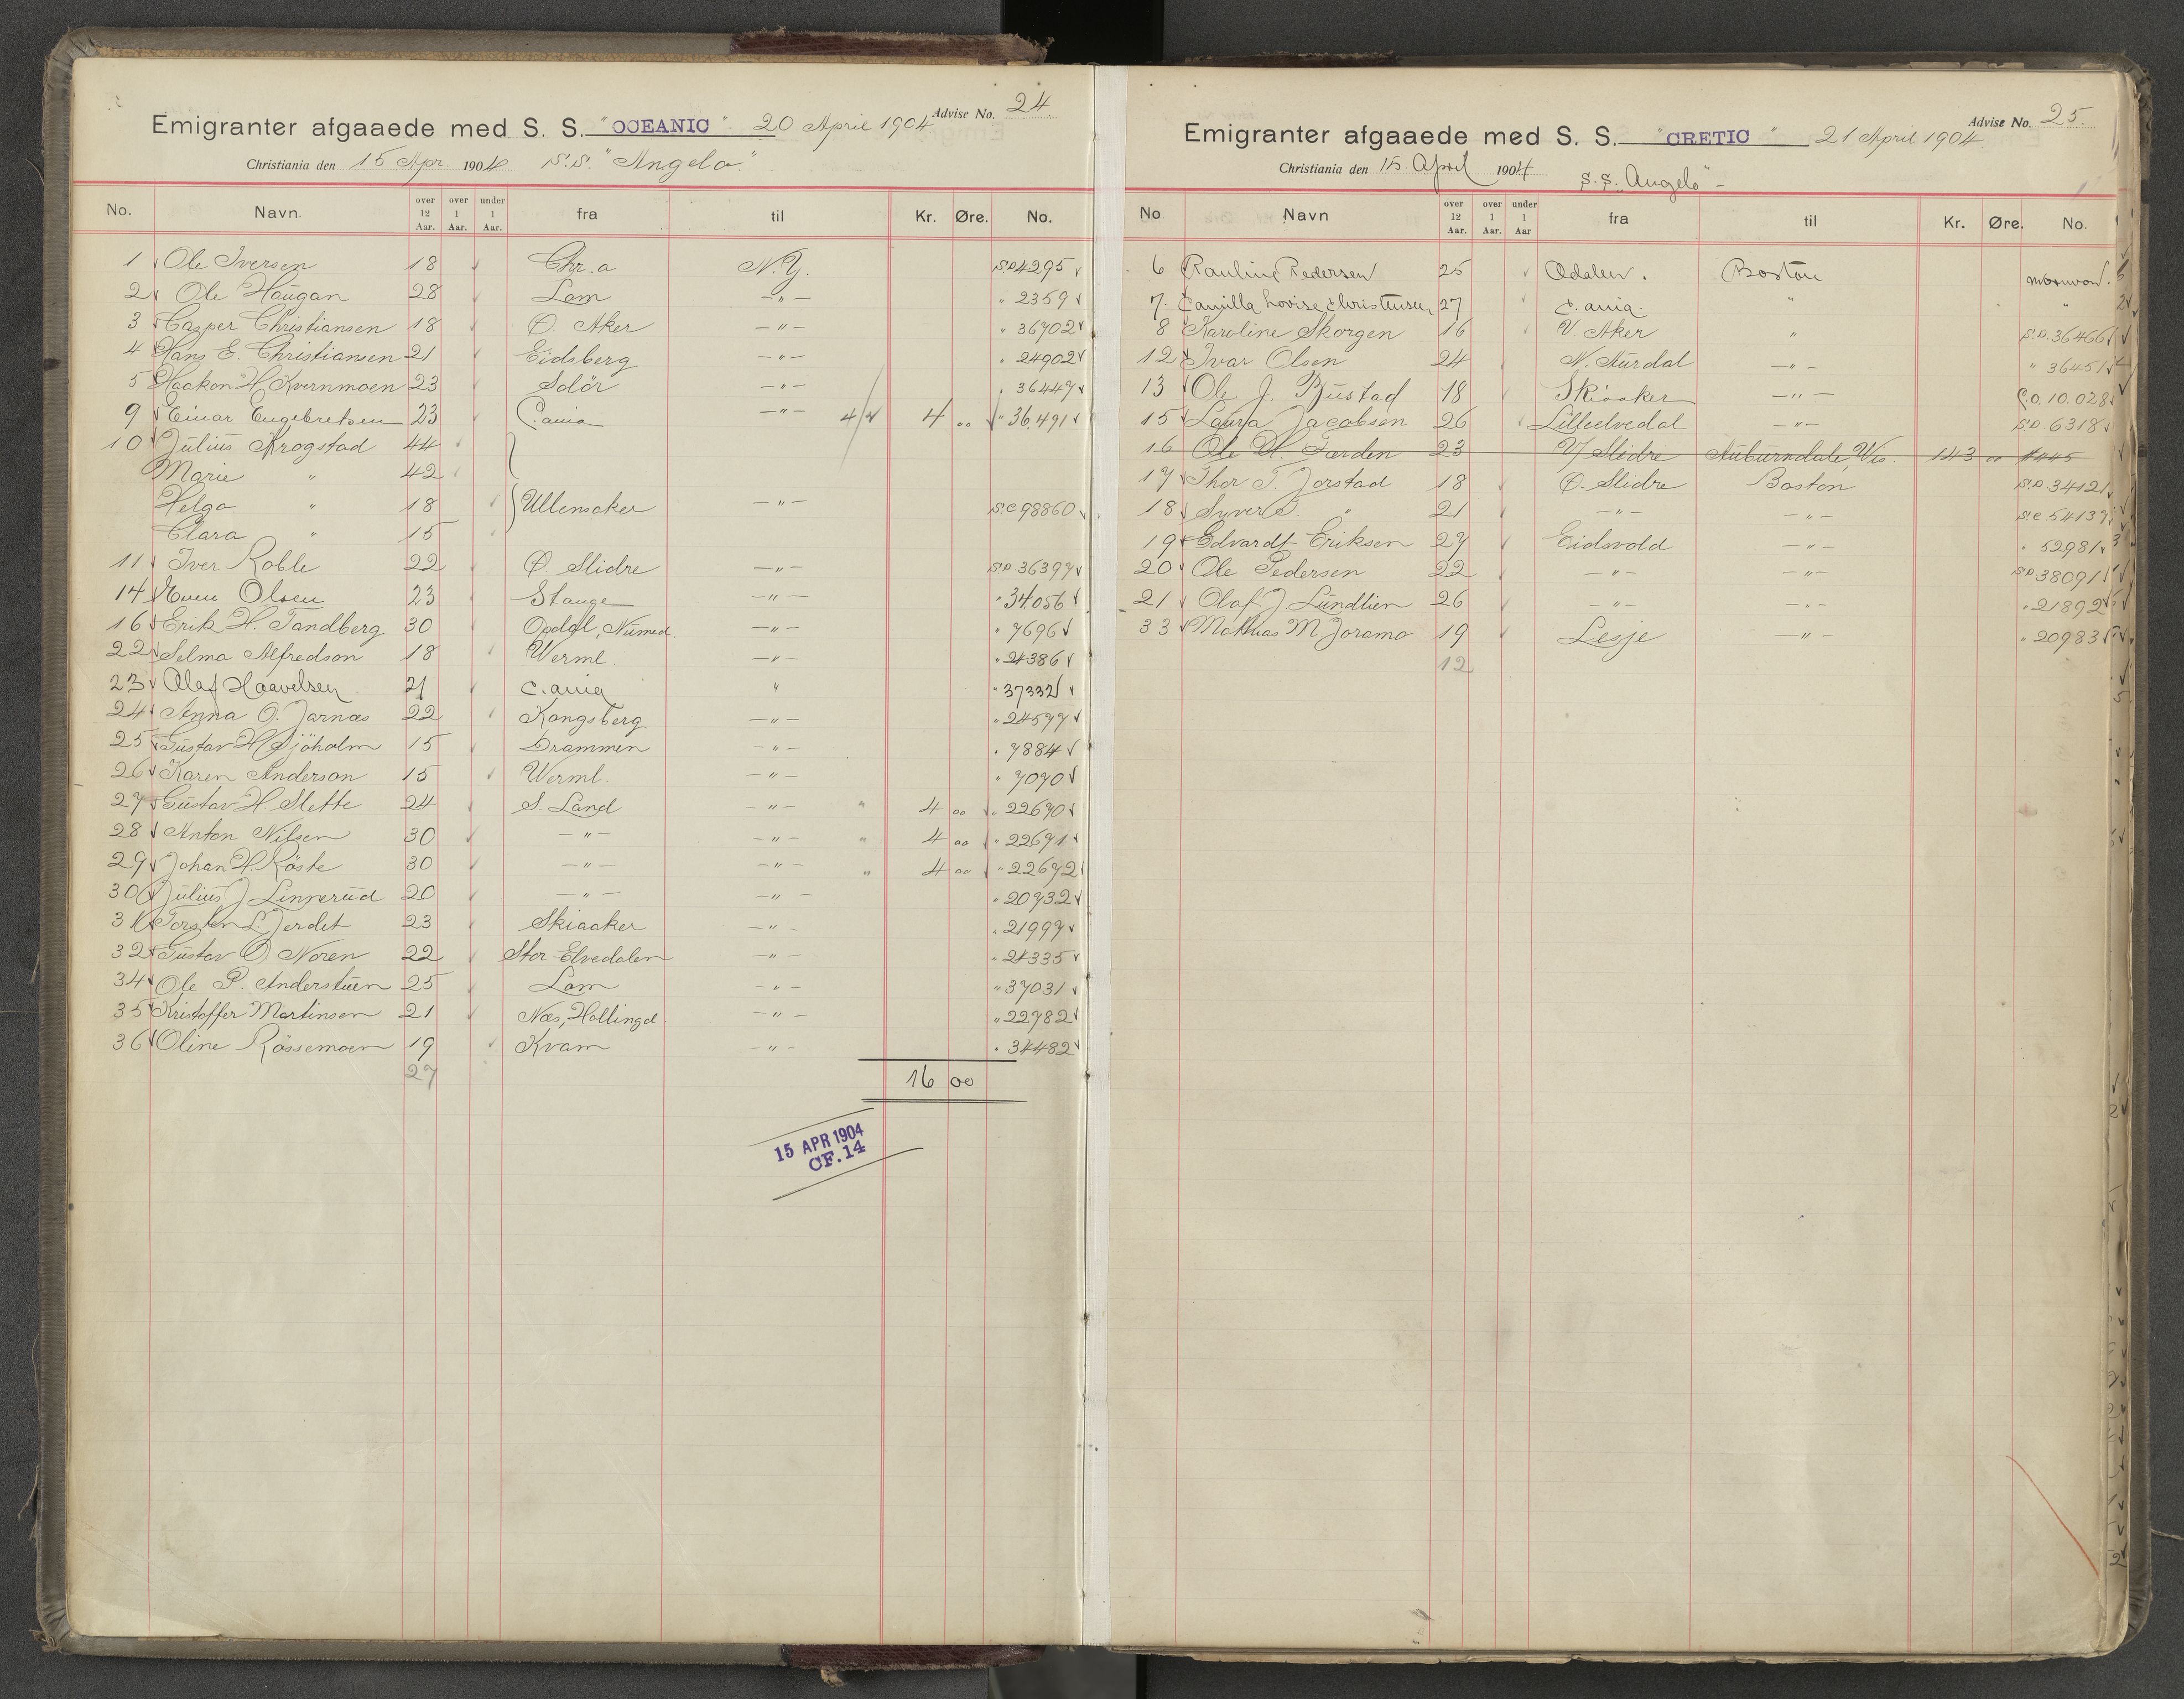 Advise No. 24
Emigranter afgaaede med S. S. "OCEANIC" 20 April 1904
Christiania den 15 Apr. 1904 S.S. "Angelo"
No. Navn. over 12 Aar. over 1 Aar. under 1 Aar. fra til Kr. Øre. No.
1 Ole Iversen 18 Chr.a N.Y. S.D 4295
2 Ole Haugan 28 Lom —"— " 2359
3 Casper Christiansen 18 Ø. Aker —"— " 36702
4 Hans E. Christiansen 21 Eidsberg —"— " 24902
5 Haakon H. Kvernmoen 23 Solör —"— " 36447
9 Einar Engebretsen 23 C.ania —"— 4/ 4 00 " 36.491
10 Julius Krogstad 44
Marie " 42
Helga " 18 Ullensaker —"— S.C 98860
Clara " 15
11 Iver Roble 22 Ø. Slidre —"— S.D. 36397
14 Even Olsen 23 Stange —"— " 34.056
16 Erik H. Tandberg 30 Opdal, Numed. —"— " 7696
22 Selma Alfredson 18 Werml. —"— " 24386
23 Olaf Haavelsen 21 C.ania " " 37332
24 Anna O. Jarnæs 22 Kongsberg —"— " 24577
25 Gustav H. Sjöholm 15 Drammen —"— " 7884
26 Karen Anderson 15 Werml. —"— " 7070
27 Gustav H. Slette 24 S. Land —"— " 4 00 " 22670
28 Anton Nilsen 30 —"— —"— " 4 00 " 22671
29 Johan H. Röste 30 —"— —"— " 4 00 " 22672
30 Julius J Linnerud 20 —"— —"— " 20732
31 Torsten L. Jerdet 23 Skiaaker —"— " 21997
32 Gustav O. Noren 22 Stor-Elvedalen —"— " 24335
34 Ole P. Anderstuen 25 Lom —"— " 37031
35 Kristoffer Martinsen 21 Næs, Hallingd. —"— " 22782
36 Oline Rössemoen 19 Kvam —"— " 34482
27
16 00
15 APR 1904
CF. 14
Advise No. 25.
Emigranter afgaaede med S. S. "CRETIC" 21 April 1904
Christiania den 15 April 1904 S.S. "Angelo"
No Navn over 12 Aar. over 1 Aar. under 1 Aar fra til Kr. Øre. No.
6 Pauline Pedersen 25 Odalen. Boston
7. Camilla Lovise Christensen 27 C.ania. " "
8 Karoline Skorgen 16 V. Aker " S.D. 36466
12 Ivar Olsen 24 N. Aurdal —"— " 36451
13 Ole J. Bjustad 18 Skiaaker —"— C.O. 10.028
15 Laura Jacobsen 26 Lilleelvedal —"— S.D. 6318
16 Ole H. Færden 23 V. Slidre Auburndale, Wis. 143 00 4445
17 Thor T. Jorstad 18 Ø. Slidre Boston S.D. 34121
18 Syver S. " 21 —"— —"— S.C. 54137
19 Edvardt Eriksen 27 Eidsvold —"— " 52981
20 Ole Pedersen 22 —"— —"— S.D 38091
21 Olaf J. Lundlien 26 —"— —"— " 21892
33 Mathias M Joramo 19 Lesje —"— " 20983
12